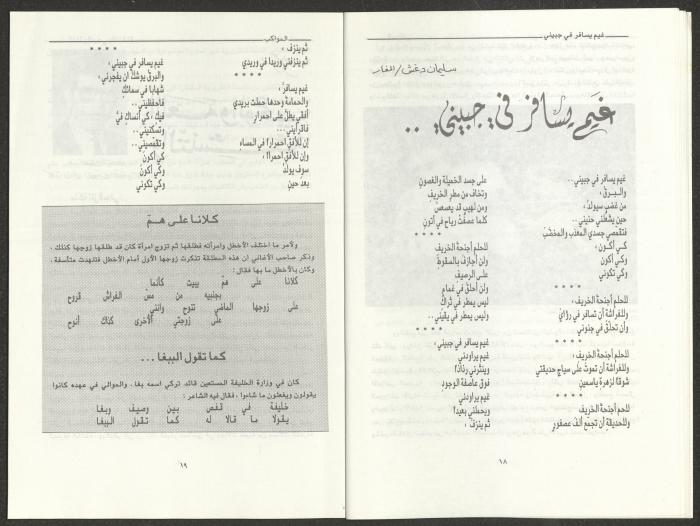 غيم يسافر في جبيني
سليمان دغش/المغار
غيم يسافر في جبيني ..
غيم يسافر في جبيني..
والبرق،
من غضب سيولد،
حين يشعلني حنيني..
فتقمصي جسدي المعذب والمخضب
كي أكون،
وكي أكون
كي تكوني
* * * *
للحلم أجنحة الخريف،
وللفراشة أن تسافر في رؤاي
وأن تحلق في جنوني
* * * *
للحلم أجنحة الخريف،
وللفراشة أن تموت على سياج حديقتي
شوقاً لزهرة ياسمين
* * * *
للحلم أجنحة الخريف
وللحديقة أن تجمع ألف عصفور
على جسد الخميلة والغصون
وتخاف من مطر الخريف
ومن لهيب قد يعسعس
كلما عصفت رياح في أتون
* * * *
للحلم أجنحة الخريف
ولن أجازف بالسقوط
على الرصيف
ولن أحلق في غمام
ليس يمطر في ثراك
وليس يمطر في يقيني..
* * * *
غيم يسافر في جبيني،
غيم يراودني
وينثرني رذاذا
فوق عاصفة الوجود
غيم يراودني
ويحملني بعيدا
ثم ينزف،
١٨
المواكب
ثم ينزف،
ثم ينزفني وريدا في وريدي
* * * *
غيم يسافر،
والحمامة وحدها حملت بريدي
أفقي يطل على احمرار
فاقرأيني...
إن للأفق احمرارا في المساء
وإن للأفق احمرارا،
سوف يولد
بعد حين
* * * *
غيم يسافر في جبيني،
والبرق يوشك أن يفجرني،
شهابا في سمائك
فاحفظيني..
فيك، كي أنساك في
وتسكنيني..
وتقمصيني..
كي أكون
وكي أكون
وكي تكوني
كلانا على همّ
ولأمر ما اختلف الأخطل وامرأته فطلقها ثم تزوج امرأة كان قد طلقها زوجها كذلك.
وذكر صاحب الأغاني ان هذه المطلقة تذكرت زوجها الأول أمام الأخطل فتنهدت متأسفة،
وكان بالأخطل ما بها فقال:
كلانا على همّ يبيت كأنما
بجنبيه من مسّ الفراش قروح
على زوجها الماضي تنوح وانني
على زوجتي الأخرى كذاك أنوح
كما تقول الببغا ...
كان في وزارة الخليفة المستعين قائد تركي اسمه بغا، والحوالي في عهده كانوا
يقولون ويفعلون ما شاءوا، فقال فيه الشاعر:
خليفة في قفص بين وصيف وبغا
يقول ما قالا له كما تقول الببغا
١٩